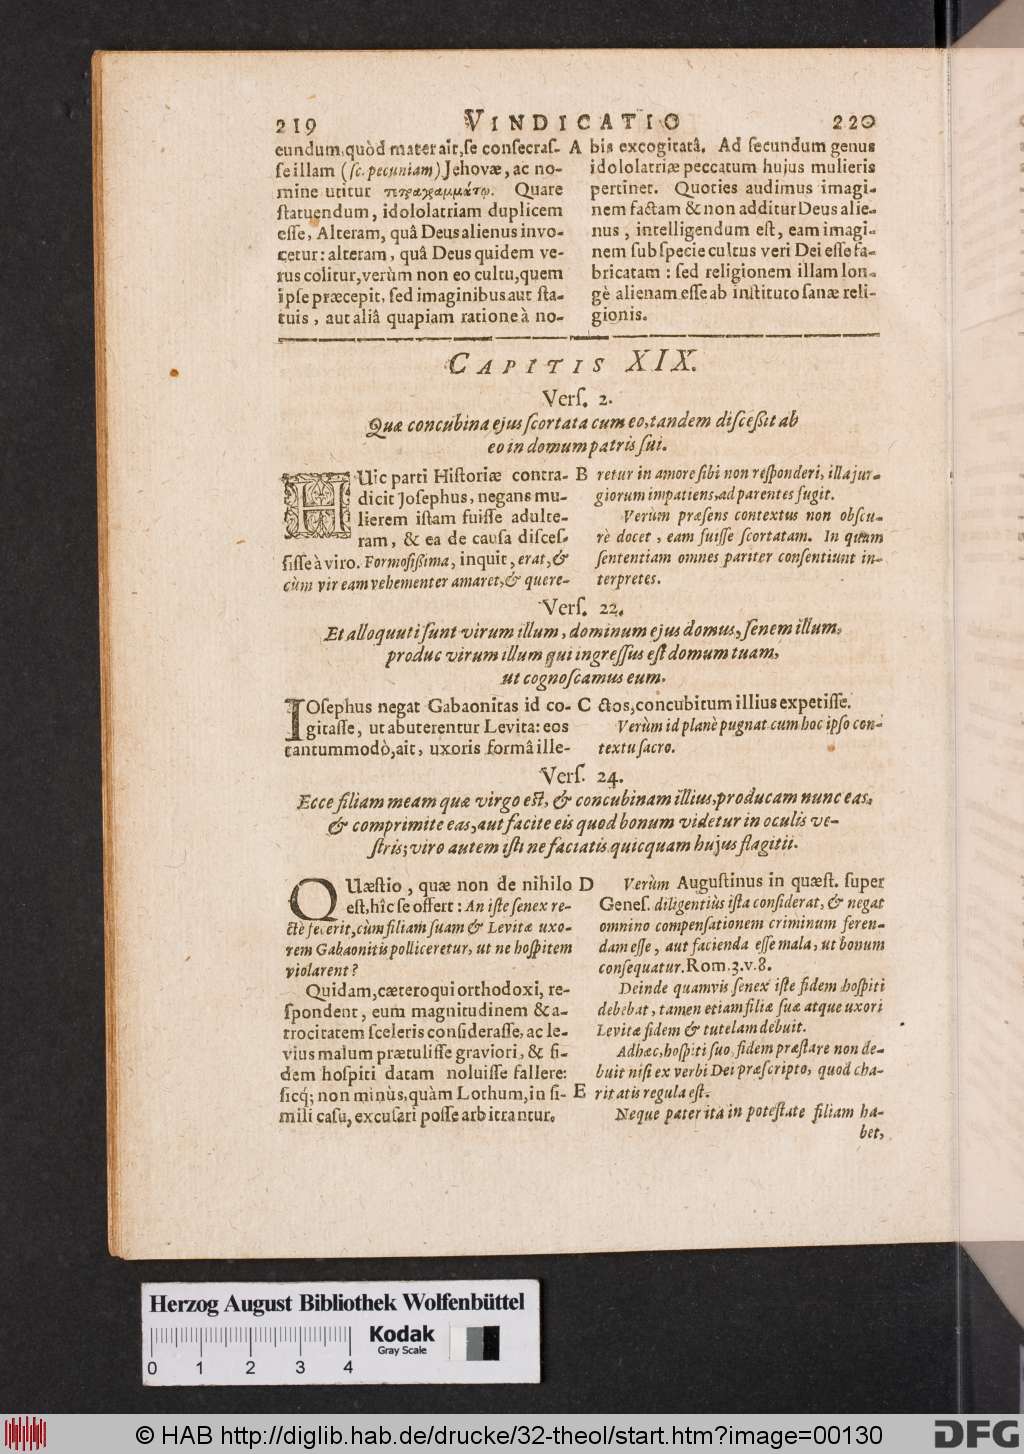 219 VINDICATIO 220
cundum, quòd mater ait, se consecras-
se illam (sc. pecuniam) Jehovæ, ac no-
mine utitur
Quare
statuendum, idololatriam duplicem
esse, Alteram, quâ Deus alienus invo-
cetur: alteram, quâ Deus quidem ve-
rus colitur, verùm non eo cultu, quem
ipse præcepit, sed imaginibus aut sta-
tuis, aut aliâ quapiam ratione à no-
A
bis excogitatâ. Ad secundum genus
idololatriæ peccatum hujus mulieris
pertinet. Quoties audimus imagi-
nem factam & non additur Deus alie-
nus, intelligendum est, eam imagi-
nem sub specie cultus veri Dei esse fa-
bricatam: sed religionem illam lon-
gè alienam esse ab instituto sanæ reli-
gionis.
CAPITIS XIX.
Vers. 2.
Quæ concubina ejus scortata cum eo, tandem discessit ab
eo in domum patris sui.
HUic parti Historiæ contra-
dicit Josephus, negans mu-
lierem istam fuisse adulte-
ram, & ea de causa disces-
sisse à viro. Formosissima, inquit, erat, &
cùm vir eam vehementer amaret, & quere-
B
retur in amore sibi non responderi, illa jur-
giorum impatiens, ad parentes fugit.
Verùm præsens contextus non obscu-
rè docet, eam fuisse scortatam. In quam
sententiam omnes pariter consentiunt in-
terpretes.
Vers. 22.
Et alloquuti sunt virum illum, dominum ejus domus, senem illum,
produc virum illum qui ingressus est domum tuam,
ut cognoscamus eum.
IOsephus negat Gabaonitas id co-
gitasse, ut abuterentur Levita: eos
tantummodò, ait, uxoris formâ ille-
C
ctos, concubitum illius expetisse.
Verùm id planè pugnat cum hoc ipso con-
textu sacro.
Vers. 24.
Ecce filiam meam quæ virgo est, & concubinam illius, producam nunc eas,
& comprimite eas, aut facite eis quod bonum videtur in oculis ve-
stris; viro autem isti ne faciatis quicquam hujus flagitii.
QUæstio, quæ non de nihilo
est, hîc se offert: An iste senex re-
ctè fecerit, cùm filiam suam & Levitæ uxo-
rem Gabaonitis polliceretur, ut ne hospitem
violarent?
Quidam, cæteroqui orthodoxi, re-
spondent, eum magnitudinem & a-
trocitatem sceleris considerasse, ac le-
vius malum prætulisse graviori, & fi-
dem hospiti datam noluisse fallere:
sicq́; non minùs, quàm Lothum, in si-
mili casu, excusari posse arbitrantur.
D
Verùm Augustinus in quæst. super
Genes. diligentiùs ista considerat, & negat
omnino compensationem criminum feren-
dam esse, aut facienda esse mala, ut bonum
consequatur. Rom. 3. v. 8.
Deinde quamvis senex iste fidem hospiti
debebat, tamen etiam filiæ suæ atque uxori
Levitæ fidem & tutelam debuit.
Adhæc, hospiti suo fidem præstare non de-
buit nisi ex verbi Dei præscripto, quod cha-
E
ritatis regula est.
Neque pater ita in potestate filiam ha-
bet,
Herzog August Bibliothek Wolfenbüttel
0 1 2 3 4
Kodak
Gray Scale
© HAB http://diglib.hab.de/drucke/32-theol/start.htm?image=00130
DFG